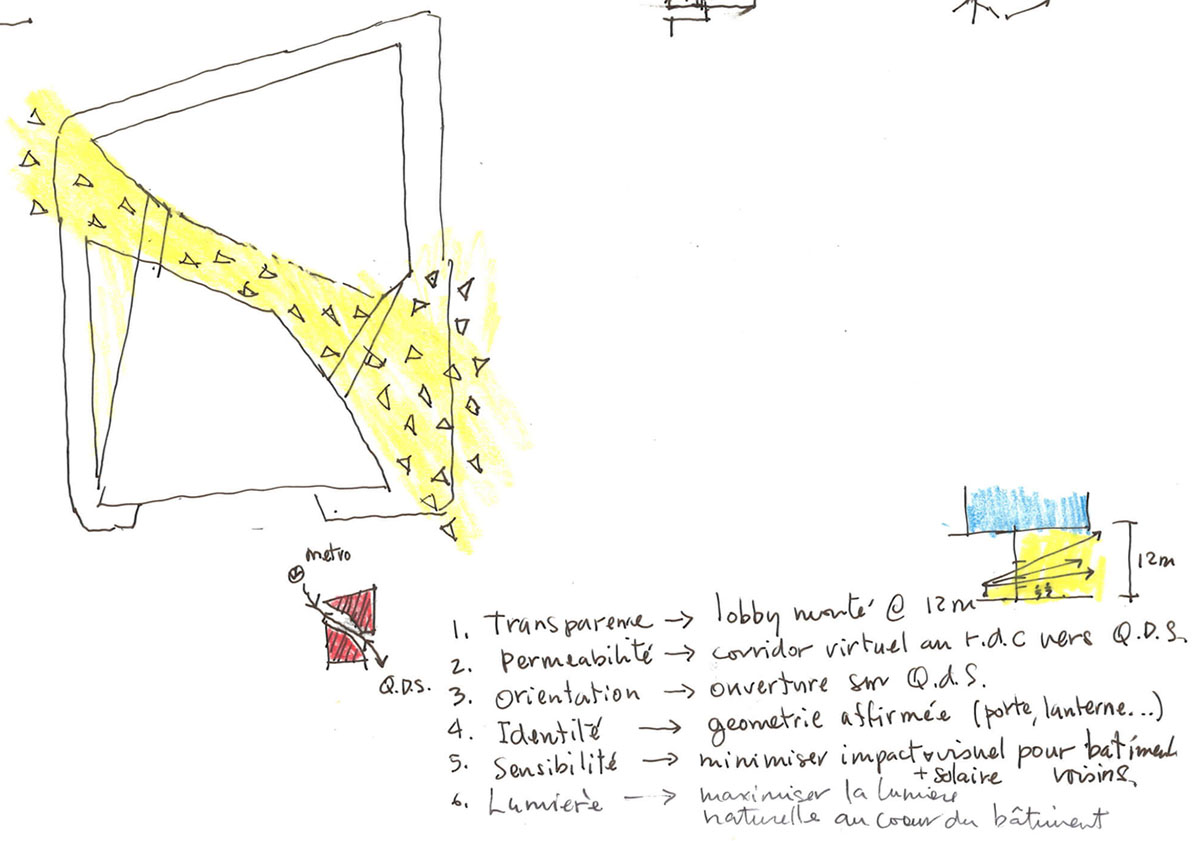 metro
M
Q.D.S.
12m
1. Transparence → lobby monté @ 12m
2. Permeabilité → corridor virtuel au r.d.c vers Q.D.S.
3. orientation → ouverture sur Q.d.S.
4. Identité → geometrie affirmée (porte, lanterne...)
5. Sensibilité → minimiser impact visuel pour bâtiment
+ solaire voisins
6. Lumierè → maximiser la lumiere
naturelle au coeur du bâtiment